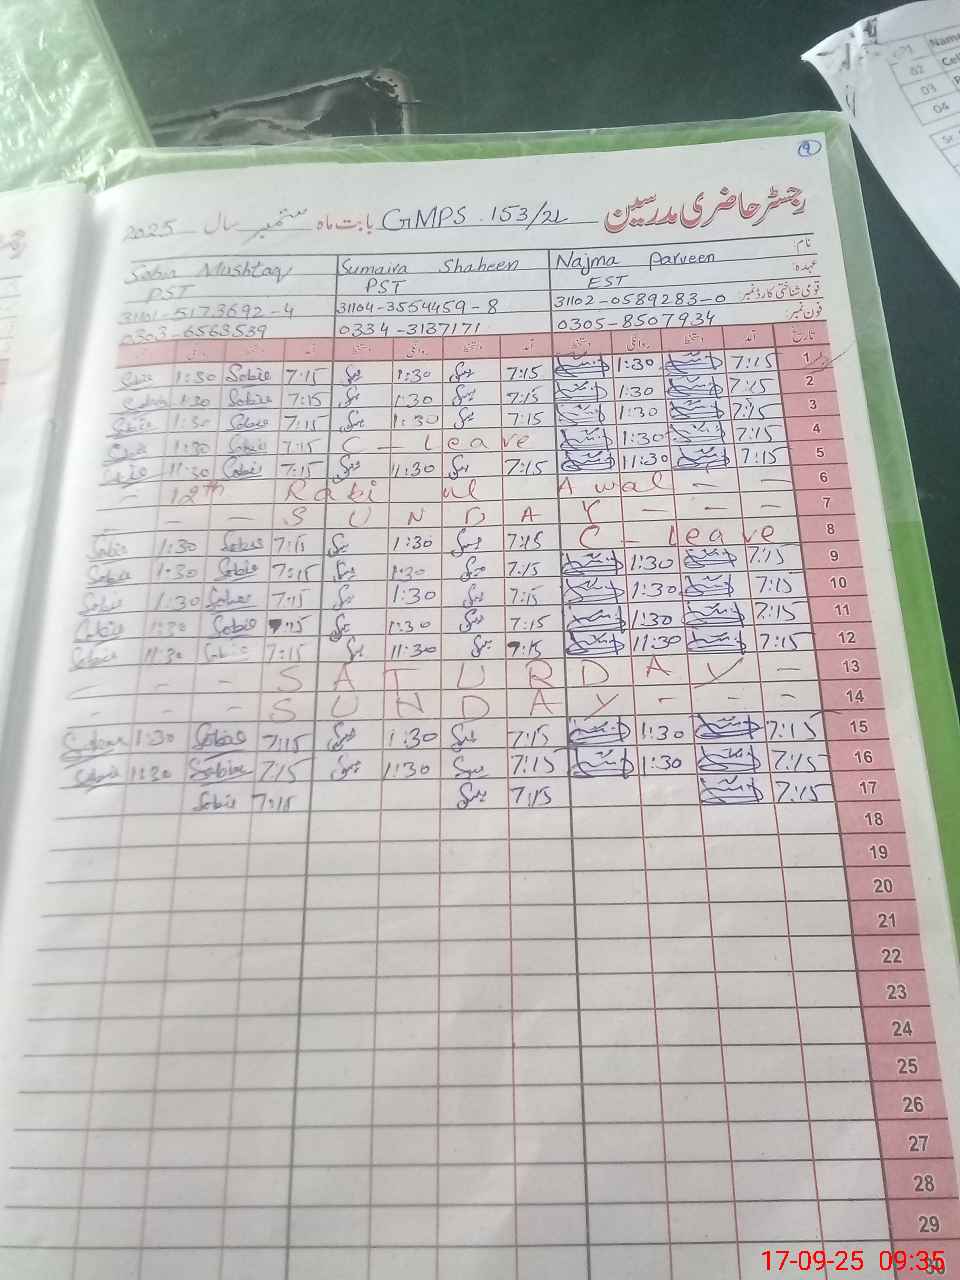 9
رجسٹر حاضری مدرسین GMPS. 153/2L بابت ماہ ستمبر سال 2025
نام: Najma Parveen Sumaira Shaheen Sobia Mushtaq
عہدہ: EST PST PST
قومی شناختی کارڈ نمبر: 31102-0589283-0 31104-3554459-8 31101-5173692-4
فون نمبر: 0305-8507934 0334-3137171 0303-6563539
تاریخ آمد دستخط روانگی دستخط آمد دستخط روانگی دستخط آمد دستخط روانگی
1 7:15 1:30 7:15 1:30 7:15 Sobia 1:30 Sobia
2 7:15 1:30 7:15 1:30 7:15 Sobia 1:30 Sobia
3 7:15 1:30 7:15 1:30 7:15 Sobia 1:30 Sobia
4 7:15 1:30 C - Leave 7:15 Sobia 1:30 Sobia
5 7:15 11:30 7:15 11:30 7:15 Sobia 11:30 Sobia
6 - 12th Rabi ul Awal - -
7 - - - SUNDAY - - -
8 C - Leave 7:15 1:30 7:15 Sobia 1:30 Sobia
9 7:15 1:30 7:15 1:30 7:15 Sobia 1:30 Sobia
10 7:15 1:30 7:15 1:30 7:15 Sobia 1:30 Sobia
11 7:15 1:30 7:15 1:30 7:15 Sobia 1:30 Sobia
12 7:15 11:30 7:15 11:30 7:15 Sobia 11:30 Sobia
13 - - - SATURDAY -
14 - - - SUNDAY - - -
15 7:15 1:30 7:15 1:30 7:15 Sobia 1:30 Sobia
16 7:15 1:30 7:15 1:30 7:15 Sobia 1:30 Sobia
17 7:15 7:15 7:15 Sobia
18
19
20
21
22
23
24
25
26
27
28
29
30
01 Name
02 Cell
03
04
Sr.
17-09-25 09:35